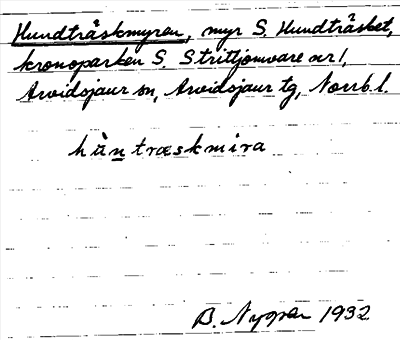 Hundträskmyren, myr S. Hundträsket,
kronoparken S. Strittjomvare nr 1,
Arvidsjaur sn, Arvidsjaur tg, Norrb. l.
hùn̲træskmira
B. Nygren 1932